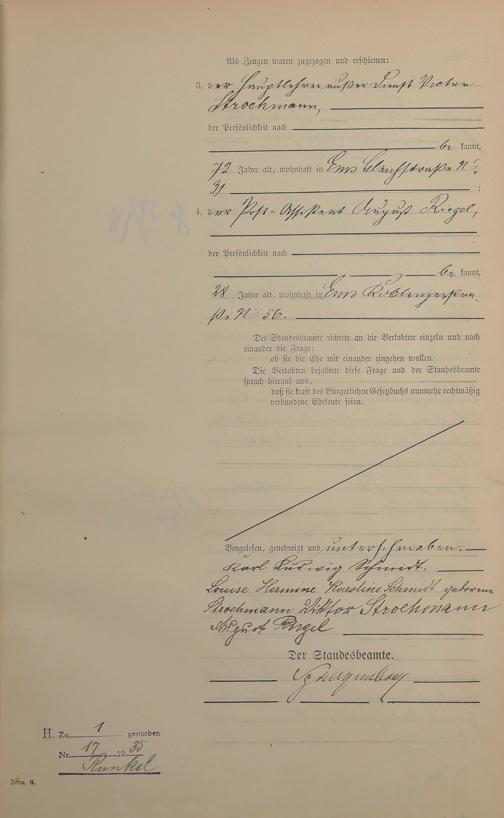 Als Zeugen waren zugezogen und erschienen:
3. der Hauptlehrer außer Dienst Victor
Strochmann,
der Persönlichkeit nach
be kannt,
72 Jahre alt, wohnhaft in Ems Bleichstraße No
31 ;
4. der Post-Assistent August Riegel,
der Persönlichkeit nach
be kannt,
28 Jahre alt, wohnhaft in Ems Koblenzerstra-
ße No 56.
Der Standesbeamte richtete an die Verlobten einzeln und nach
einander die Frage:
ob sie die Ehe mit einander eingehen wollen.
Die Verlobten bejahten diese Frage und der Standesbeamte
sprach hierauf aus,
daß sie kraft des Bürgerlichen Gesetzbuchs nunmehr rechtmäßig
verbundene Eheleute seien.
Vorgelesen, genehmigt und unterschrieben.
Karl Ludwig Schmidt.
Louise Hermine Karoline Schmidt geborene
Strochmann Viktor Strochmann
August Riegel
Der Standesbeamte.
H. Zu 1 gestorben
Nr. 17 1935
Runkel
Form. B.